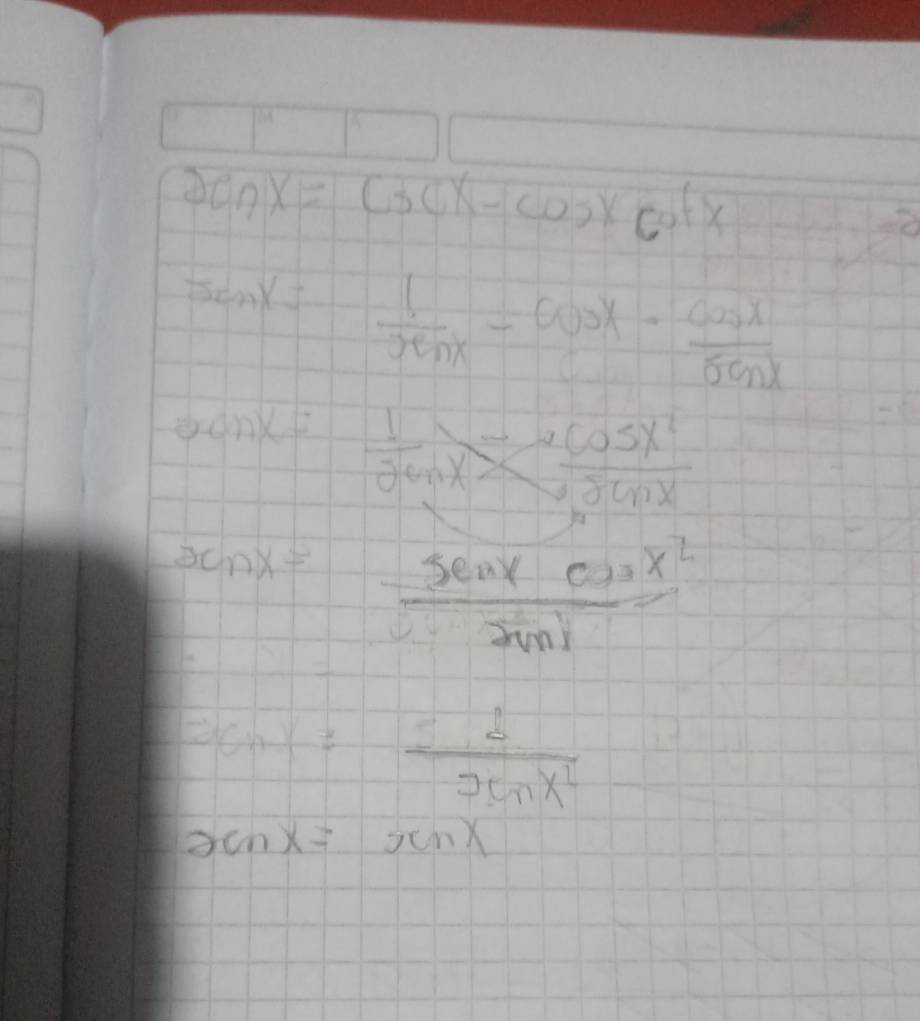 senx = cscx - cosx cotx
senx = 1/senx - cosx · cosx/senx
senx = 1/senx - cosx²/senx
senx = senx cosx²/senx
senx = 1/senx²
senx = senx